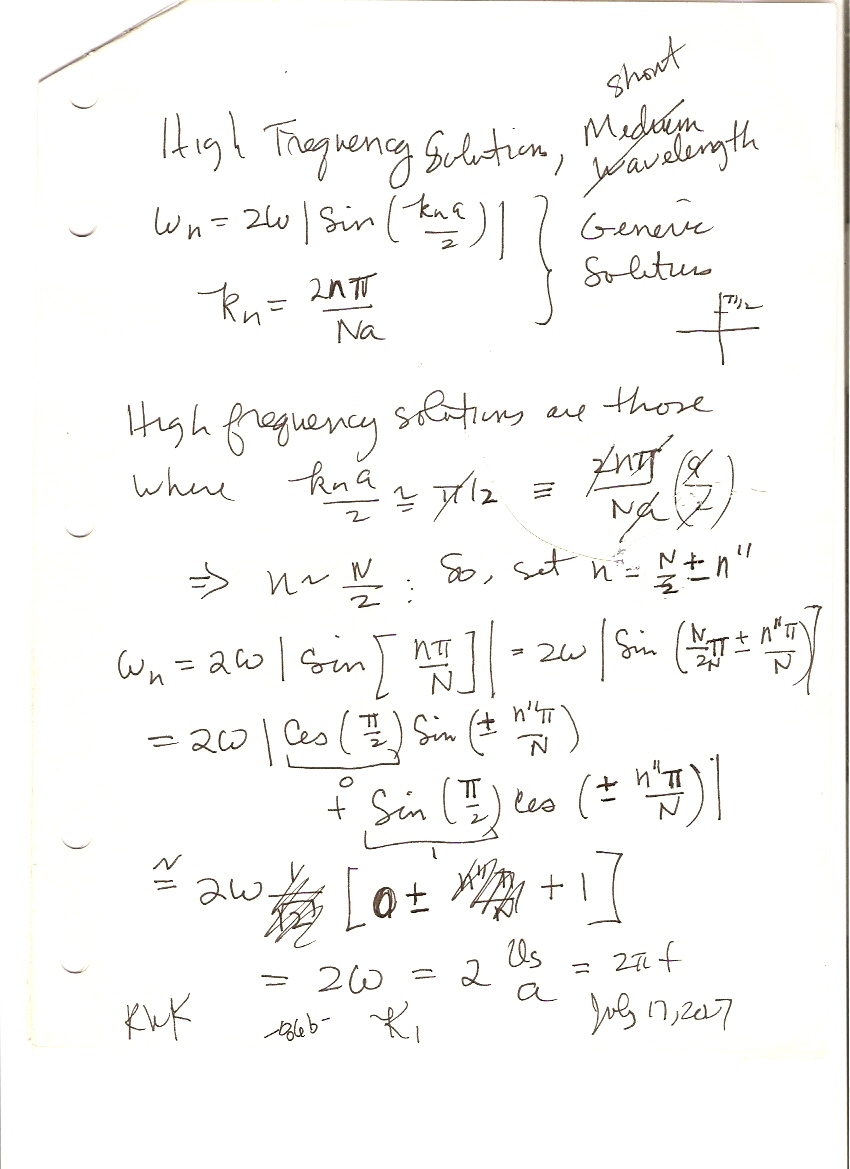 short
High Frequency Solution, Medium
Wavelength
ωn = 2ω | Sin ( kn a / 2 ) | } Generic
kn = 2nπ / Na Solutions
π/2
High frequency solutions are those
where kn a / 2 ≅ π/2 ≡ 2nπ / Na (a/2)
⇒ n ~ N/2 : So, set n = N/2 ± n''
ωn = 2ω | Sin [ nπ / N ] | = 2ω | Sin ( N/2N π ± n''π / N ) |
= 2ω | Cos ( π/2 ) Sin ( ± n''π / N )
0
+ Sin ( π/2 ) Cos ( ± n''π / N ) |
1
≅ 2ω [ 0 ± + 1 ]
= 2ω = 2 Us / a = 2π f
KWK -86b- K1 July 17, 2007